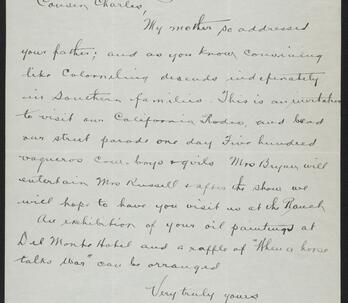 Cousin Charles,
My mother so addressed
your father; and as you know cousining
like Coloneling descends indefinately
in Southern families. This is an invitation
to visit our California Rodeo, and lead
our street parade one day Five hundred
vaqueros cow-boys & girls Mrs Bryan will
entertain Mrs Russell & after the show we
will hope to have you visit us at the Ranch
An exhibition of your oil paintings at
Del Monte Hotel and a raffle of "When a horse
talks War" can be arranged
Very truly yours